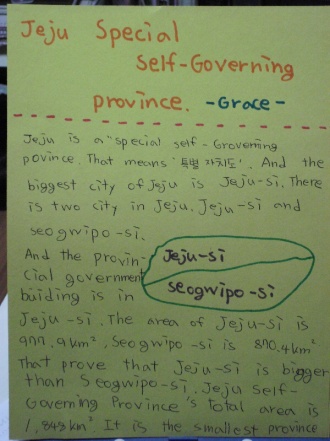 Jeju Special
Self-Governing
province. -Grace-
Jeju is a "special self-Groverning
povince. That means '특별 자치도'. And the
biggest city of Jeju is Jeju-si. There
is two city in Jeju. Jeju-si and
seogwipo-si.
And the provin-
cial government
buiding is in
Jeju-si
seogwipo-si
Jeju-si. The area of Jeju-si is
977.9km². Seogwipo-si is 870.4km²
That prove that Jeju-si is bigger
than Seogwipo-si. Jeju Self-
Governing Province's total area is
1,848km² It is the smallest province